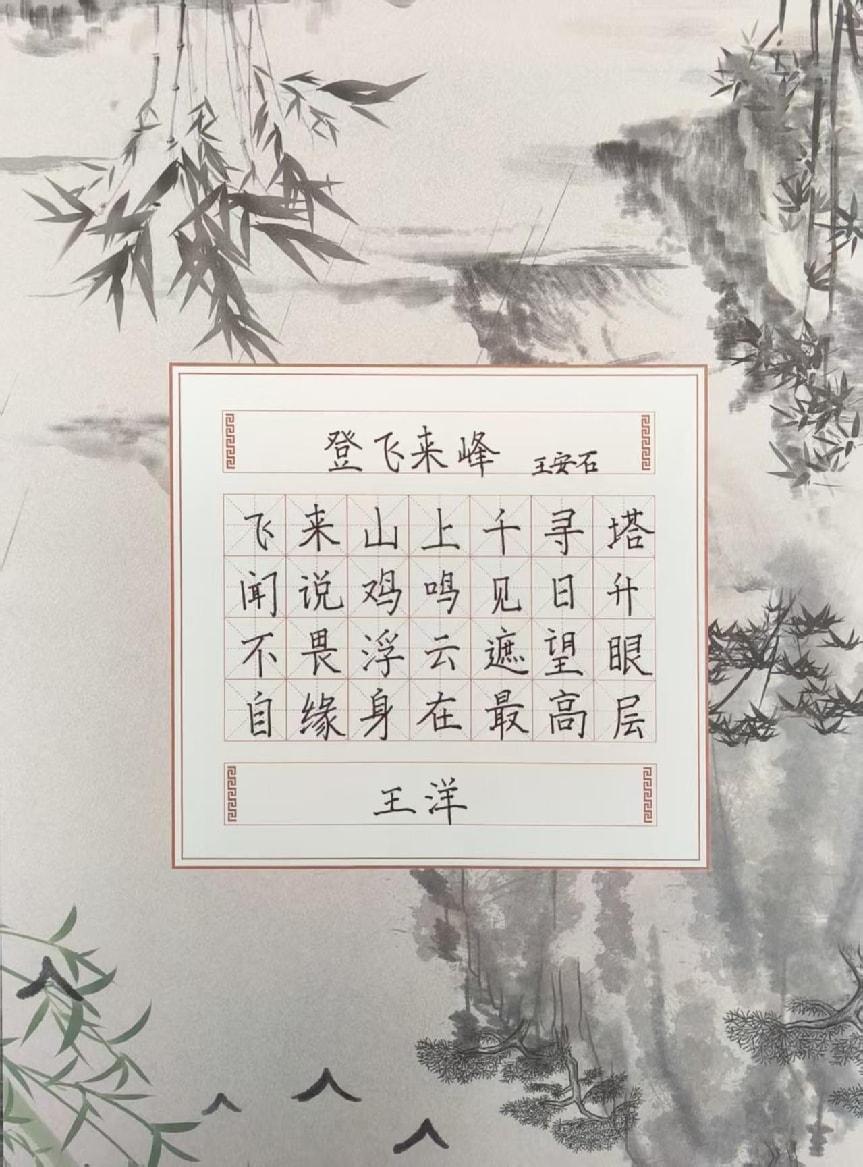 登飞来峰 王安石
飞来山上千寻塔
闻说鸡鸣见日升
不畏浮云遮望眼
自缘身在最高层
王洋